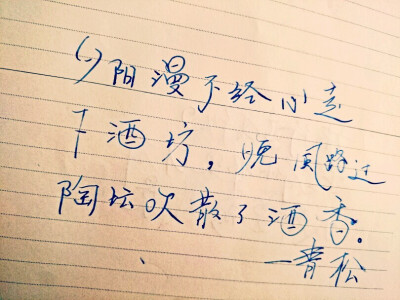 夕阳漫不经心走
下酒坊，晚风路过
陶坛吹散了酒香。
—青松